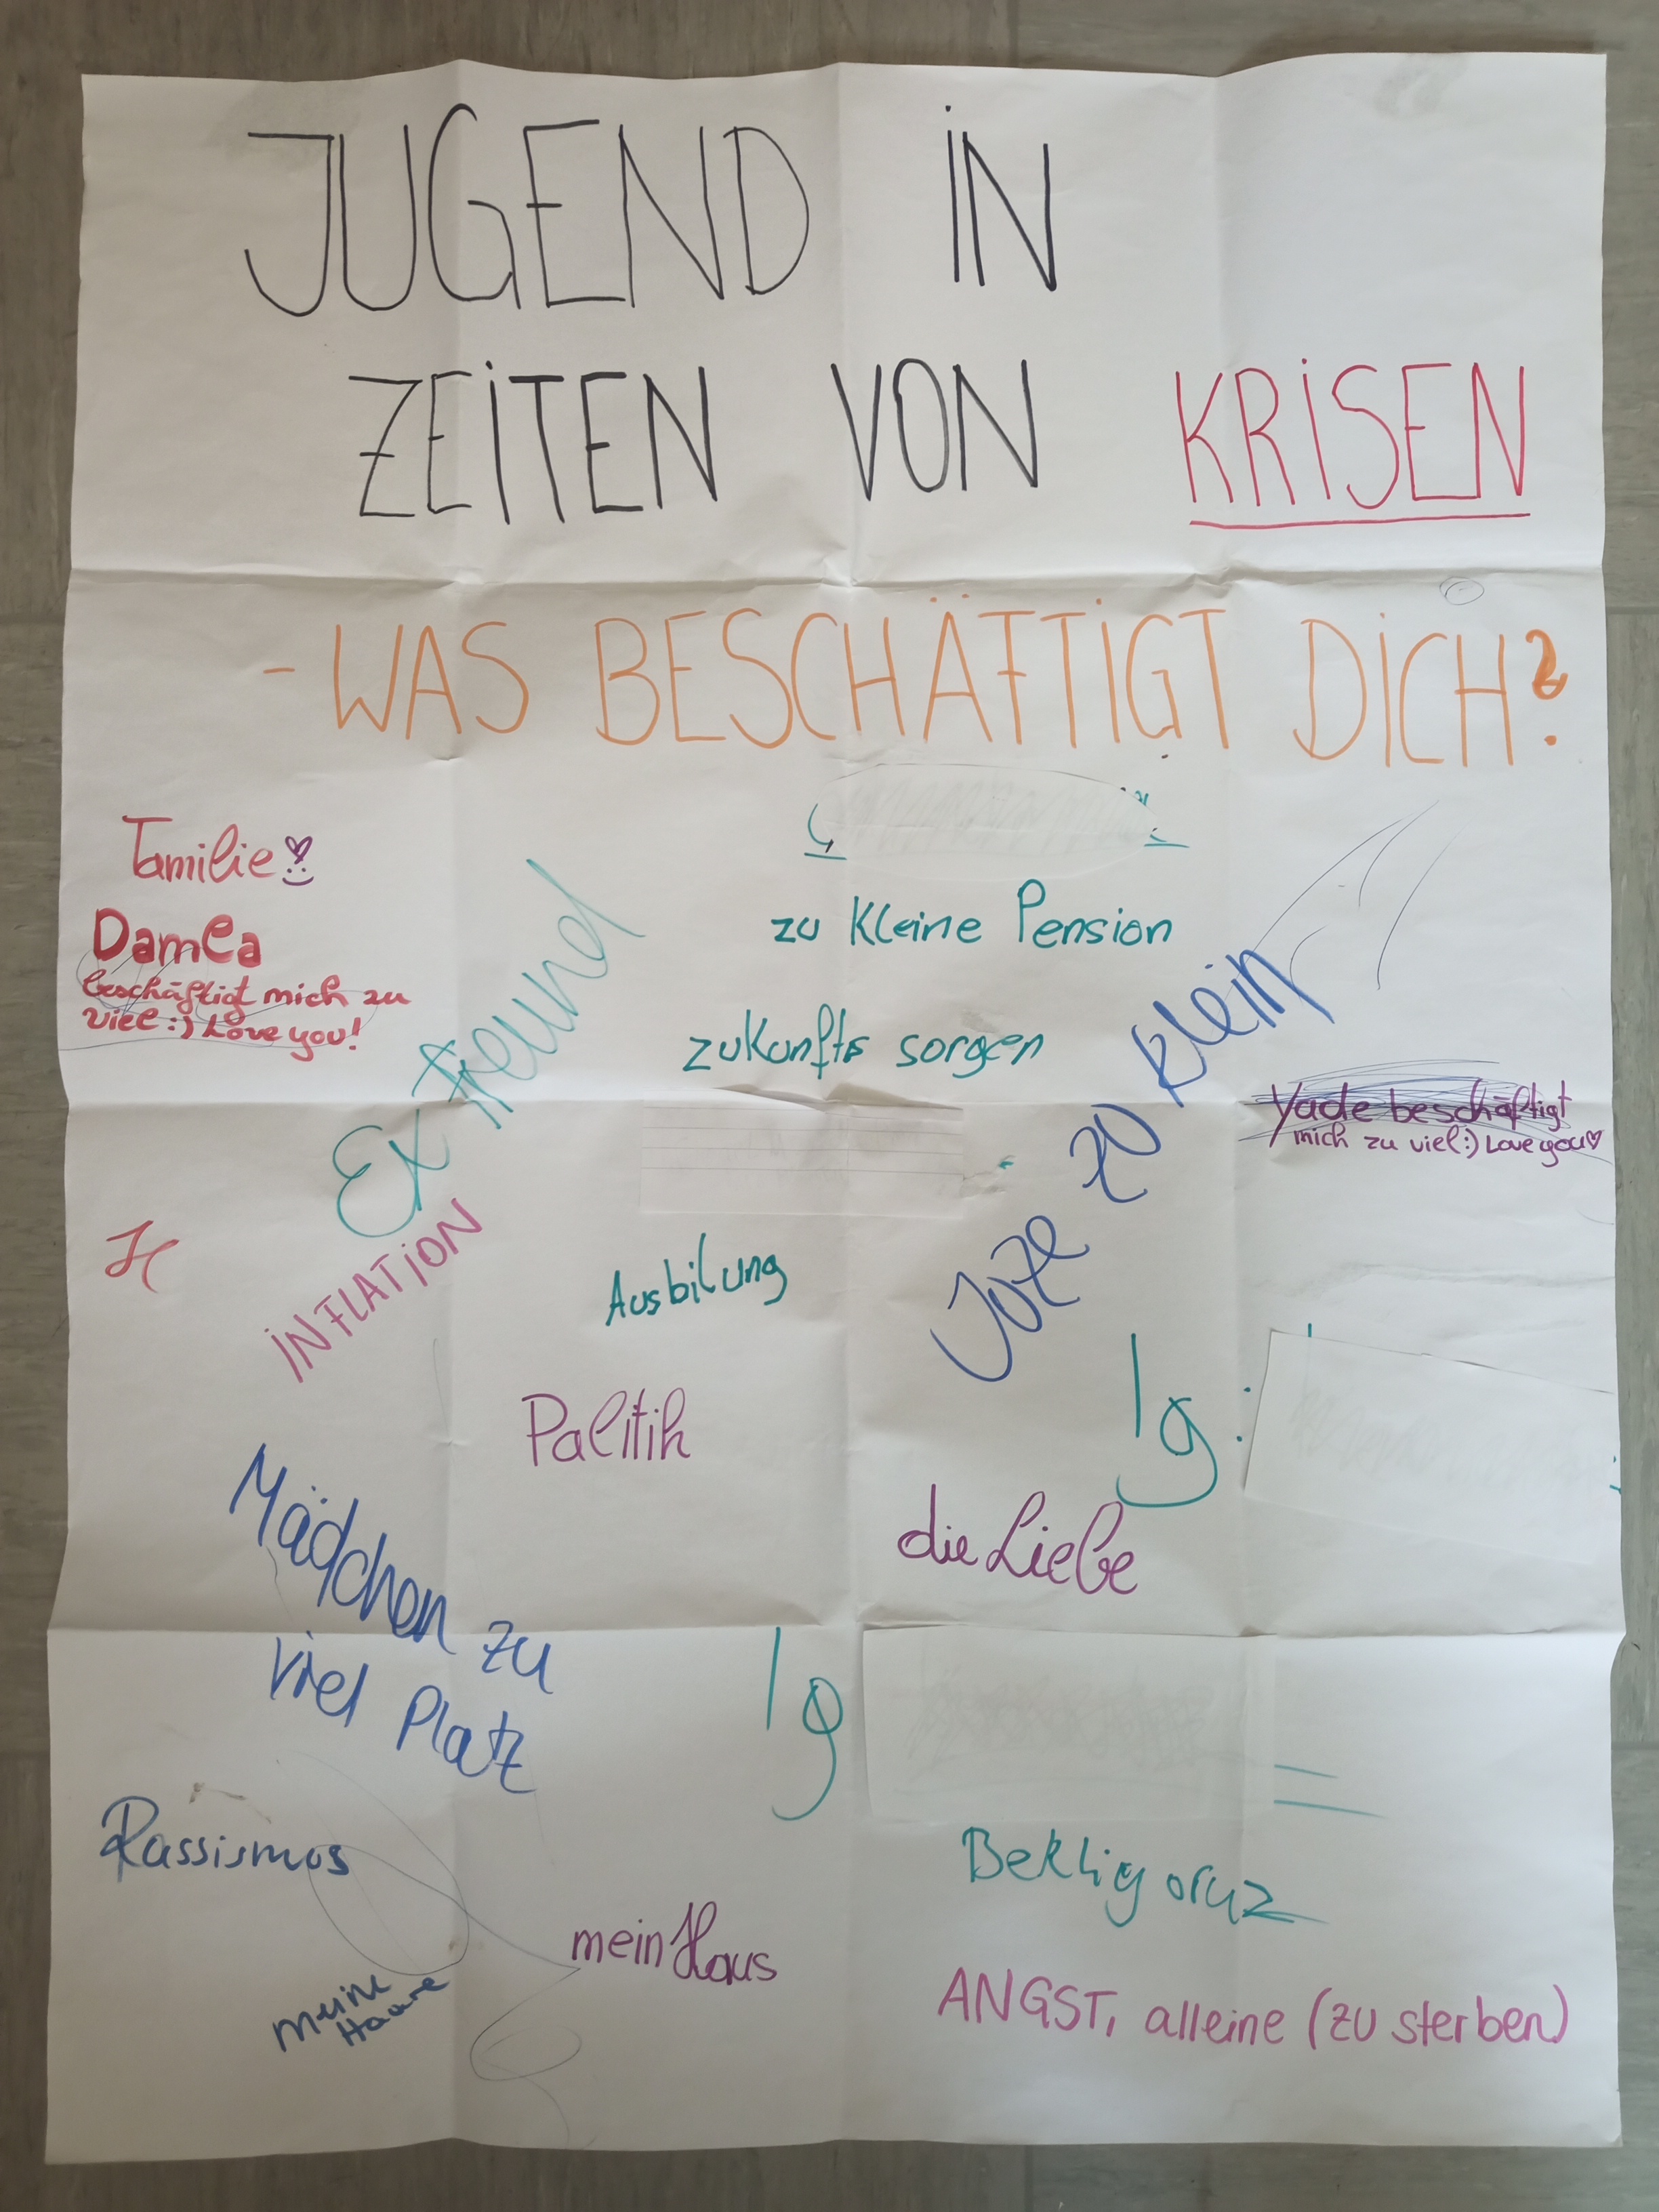 JUGEND IN
ZEITEN VON KRISEN
- WAS BESCHÄFTIGT DICH?
Familie
Damla
beschäftigt mich zu
viel :) Love you!
Ex freund
zu kleine Pension
zukunfts sorgen
zu klein
Yade beschäftigt
mich zu viel :) Love you ♡
INFLATION
Ausbilung
Politik
Ig:
die Liebe
Mädchen zu
viel Platz
Ig
Rassismus
mein Haus
meine
Haare
ANGST, alleine (zu sterben)